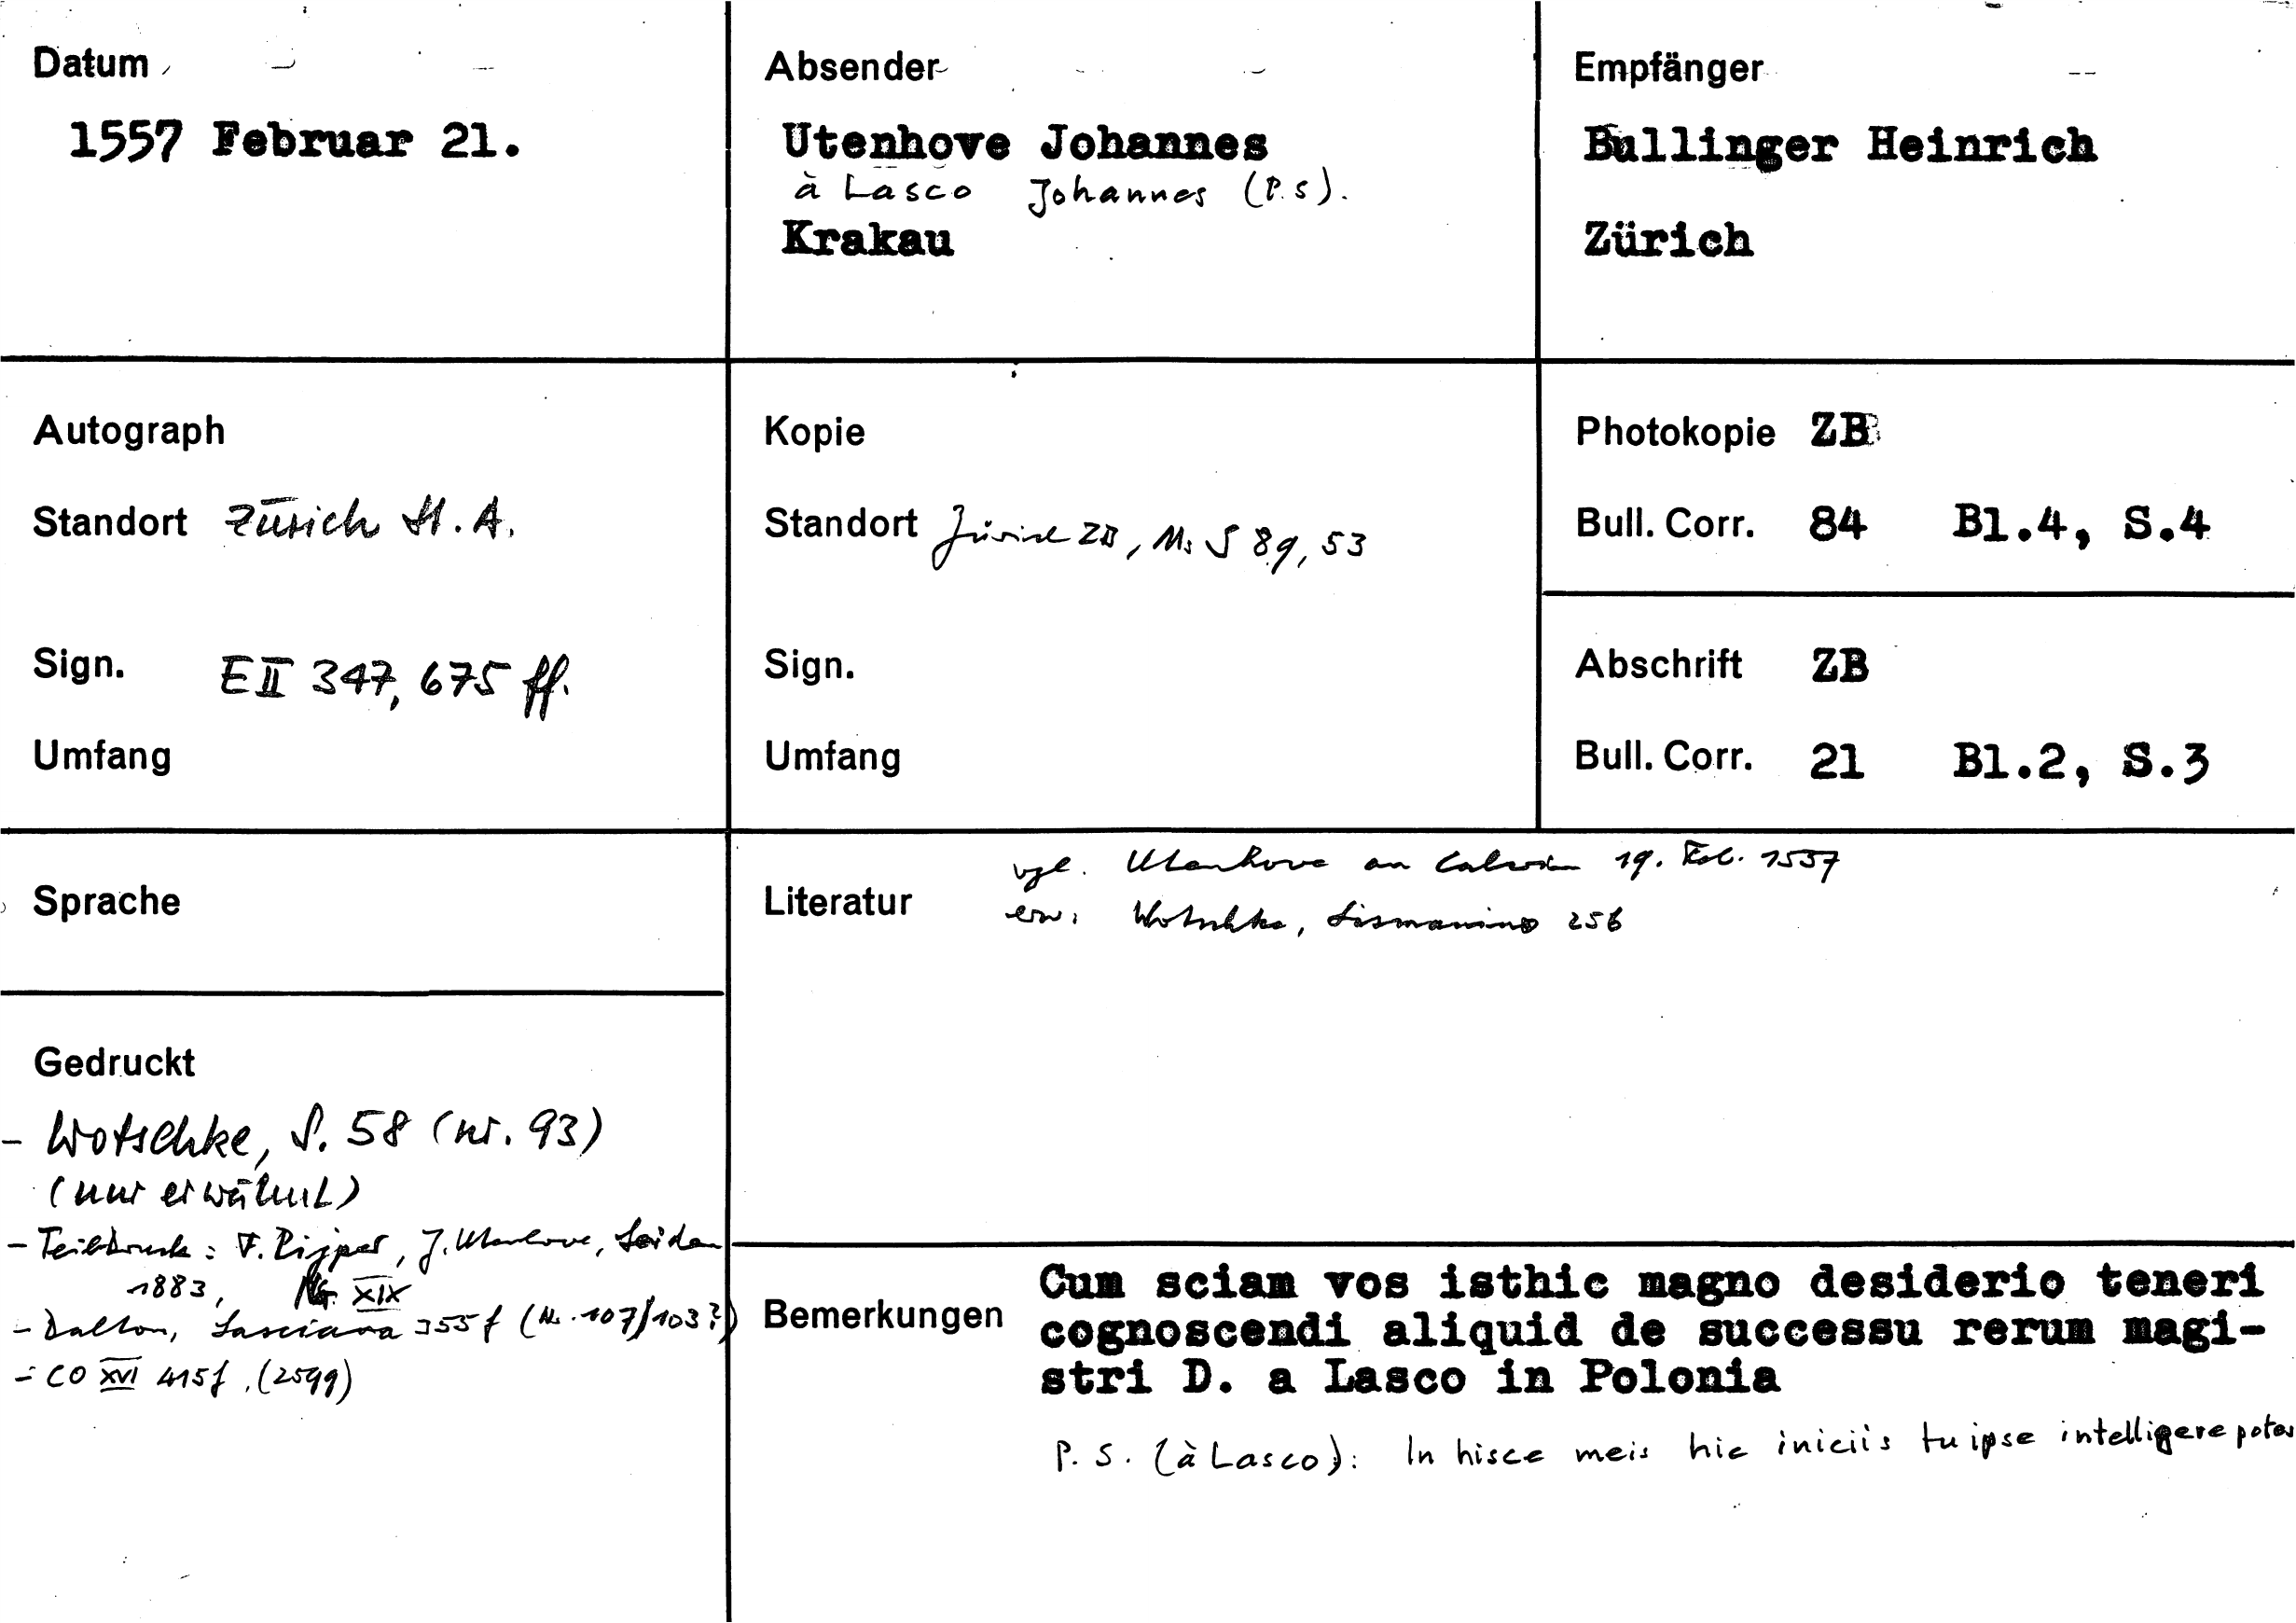 Datum
1557 Februar 21.
Absender
Utenhove Johannes
à Lasco Johannes (P.S).
Krakau
Empfänger
Bullinger Heinrich
Zürich
Autograph
Standort Zürich St.A.
Sign. E II 347, 675 ff.
Umfang
Kopie
Standort Zürich ZB, Ms S 89, 53
Sign.
Umfang
Photokopie ZB
Bull. Corr. 84 Bl.4, S.4
Abschrift ZB
Bull. Corr. 21 Bl.2, S.3
Sprache
Literatur
vgl. Utenhove an Calvin 19. Feb. 1557
erw: Wotschke, Lismanino 256
Gedruckt
- Wotschke, S. 58 (nr. 93)
(nur erwähnt)
- Teildruck: F. Pijper, J. Utenhove, Leiden
1883, Nr. XIX
- Dalton, Lasciana 355f (Nr. 107/103?)
- CO XVI 415f. (2599)
Bemerkungen
Cum sciam vos isthic magno desiderio teneri
cognoscendi aliquid de successu rerum magi-
stri D. a Lasco in Polonia
P.S. (à Lasco): In hisce meis hic iniciis tu ipse intelligere potes